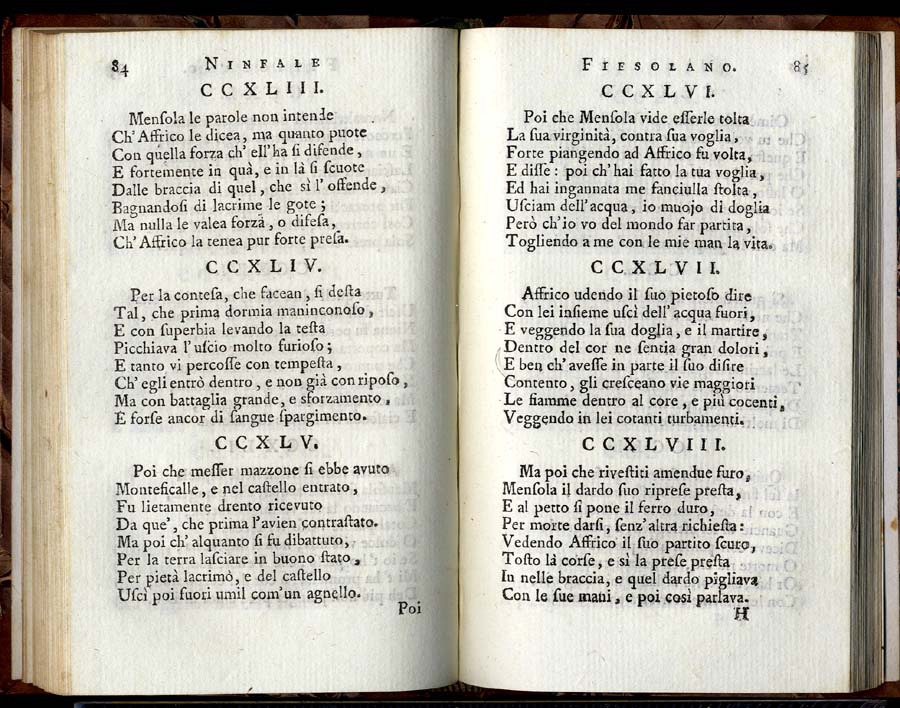 84 NINFALE
CCXLIII.
Menſola le parole non intende
Ch' Affrico le dicea, ma quanto puote
Con quella forza ch' ell' ha ſi difende,
E fortemente in quà, e in là ſi ſcuote
Dalle braccia di quel, che sì l' offende,
Bagnandoſi di lacrime le gote;
Ma nulla le valea forza, o difeſa,
Ch' Affrico la tenea pur forte preſa.
CCXLIV.
Per la conteſa, che facean, ſi deſta
Tal, che prima dormia maninconoſo,
E con ſuperbia levando la teſta
Picchiava l' uſcio molto furioſo;
E tanto vi percoſſe con tempeſta,
Ch' egli entrò dentro, e non già con ripoſo,
Ma con battaglia grande, e sforzamento,
E forſe ancor di ſangue ſpargimento.
CCXLV.
Poi che meſſer mazzone ſi ebbe avuto
Monteficalle, e nel caſtello entrato,
Fu lietamente drento ricevuto
Da que', che prima l'avien contraſtato.
Ma poi ch' alquanto ſi fu dibattuto,
Per la terra laſciare in buono ſtato,
Per pietà lacrimò, e del caſtello
Uſcì poi fuori umil com' un agnello.
Poi
FIESOLANO. 85
CCXLVI.
Poi che Menſola vide eſſerle tolta
La ſua virginità, contra ſua voglia,
Forte piangendo ad Affrico fu volta,
E diſſe: poi ch' hai fatto la tua voglia,
Ed hai ingannata me fanciulla ſtolta,
Uſciam dell' acqua, io muojo di doglia
Però ch' io vo del mondo far partita,
Togliendo a me con le mie man la vita.
CCXLVII.
Affrico udendo il ſuo pietoſo dire
Con lei inſieme uſcì dell' acqua fuori,
E veggendo la ſua doglia, e il martire,
Dentro del cor ne ſentia gran dolori,
E ben ch' aveſſe in parte il ſuo diſire
Contento, gli creſceano vie maggiori
Le fiamme dentro al core, e più cocenti,
Veggendo in lei cotanti turbamenti.
CCXLVIII.
Ma poi che riveſtiti amendue furo,
Menſola il dardo ſuo ripreſe preſta,
E al petto ſi pone il ferro duro,
Per morte darſi, ſenz' altra richieſta:
Vedendo Affrico il ſuo partito ſcuro,
Toſto là corſe, e sì la preſe preſta
In nelle braccia, e quel dardo pigliava
Con le ſue mani, e poi così parlava.
H